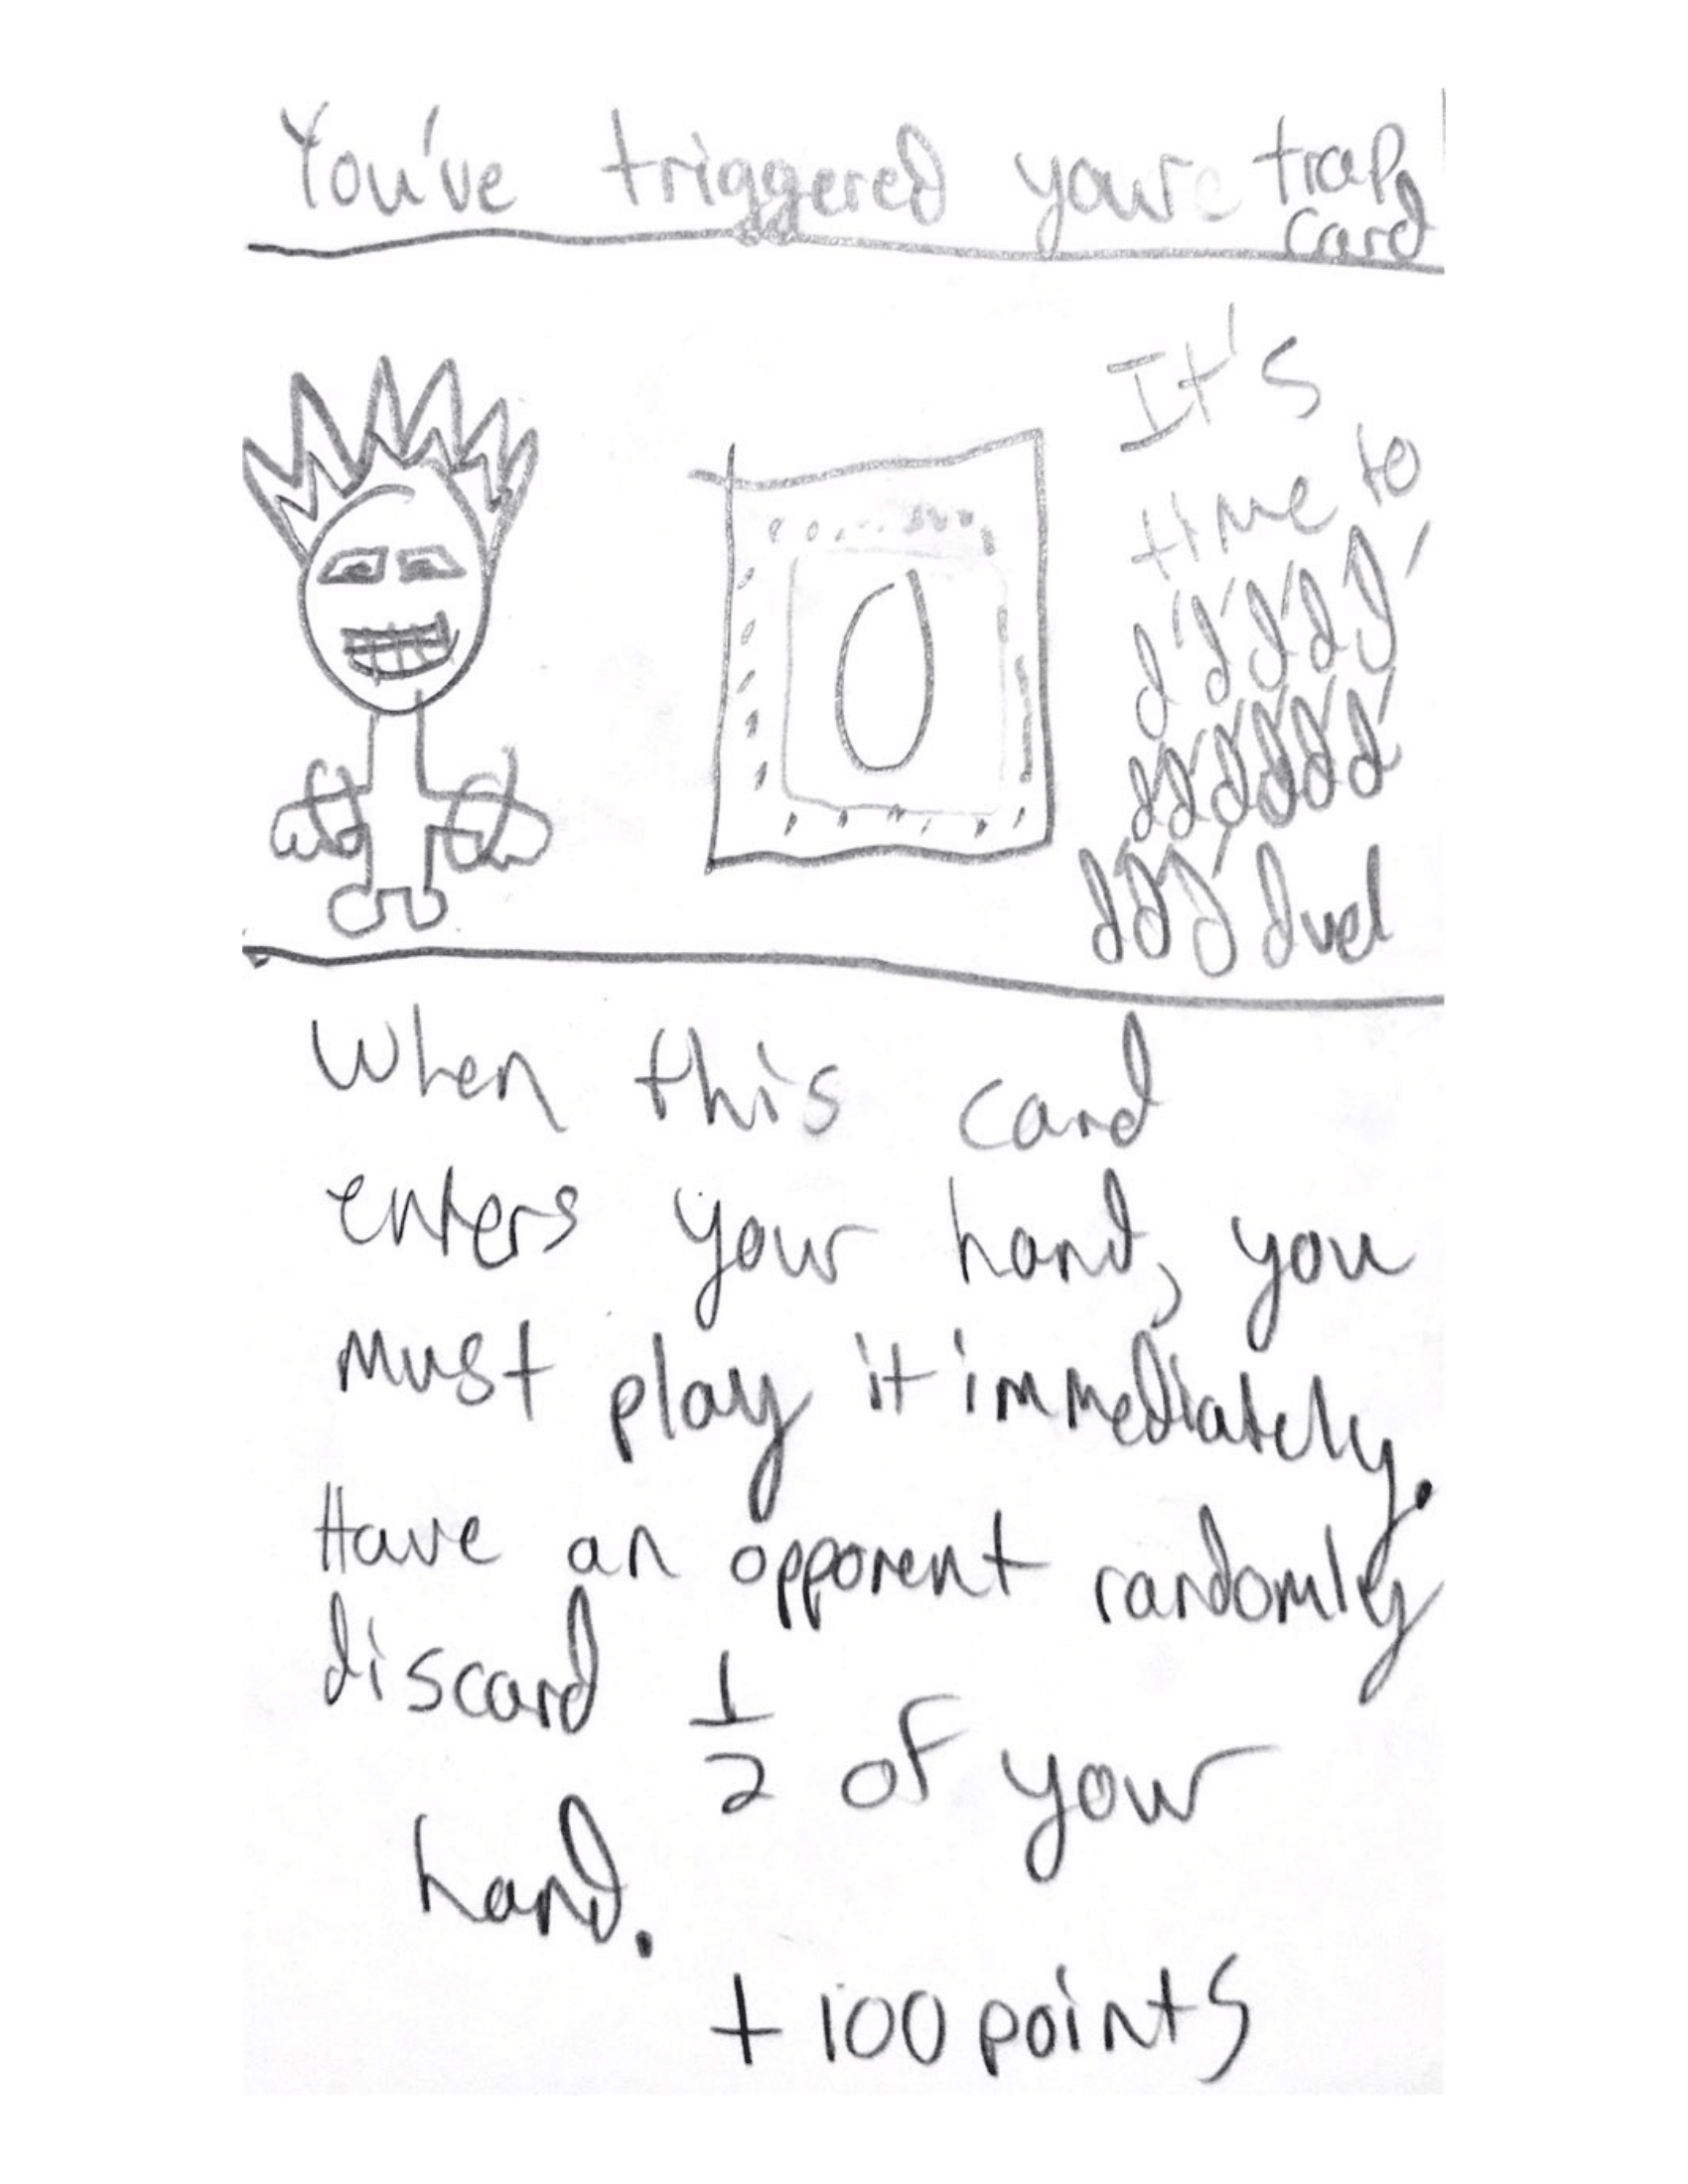 You've triggered your trap
card
It's
time to
d d d d d
d d d d d d
d d d duel
When this card
enters your hand, you
must play it immediately.
Have an opponent randomly
discard 1/2 of your
hand.
+ 100 points